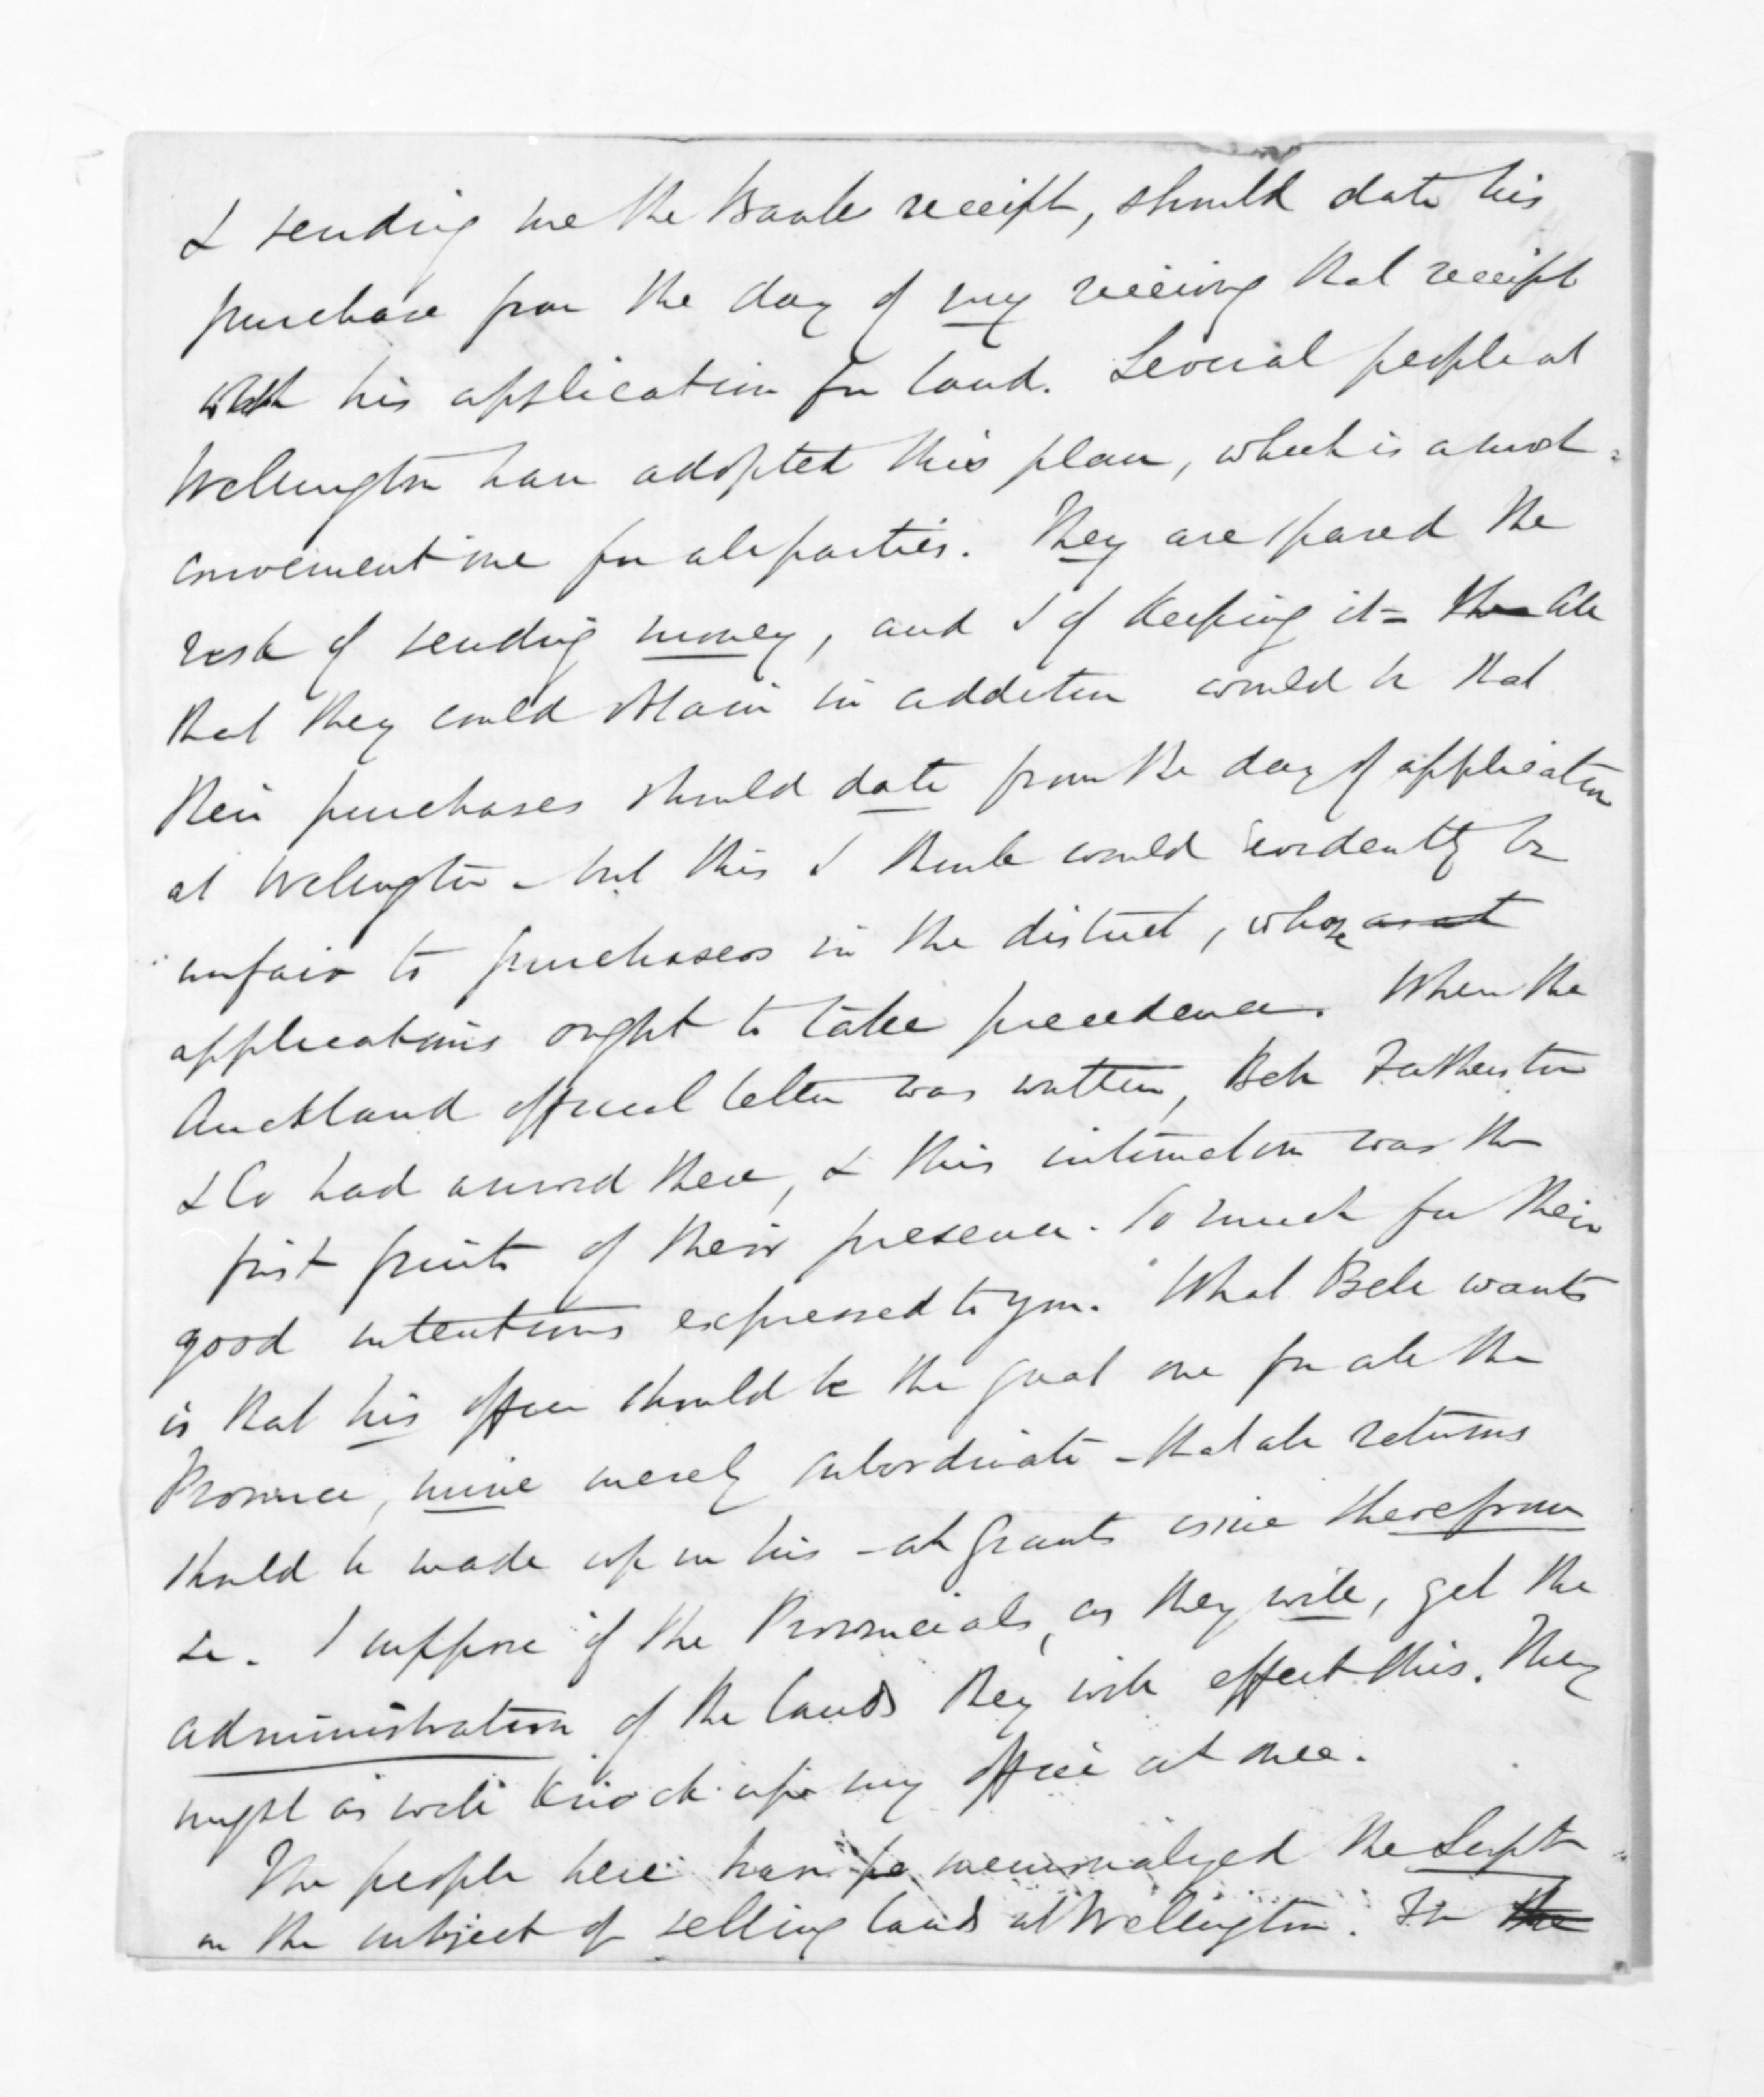 & sending me the Bank receipt, should date his
purchase from the day of my receiving that receipt
with his application for land. Several people at
Wellington have adopted this plan, which is a most
convenient one for all parties. They are spared the
risk of sending money, and I of keeping it - the All
that they could obtain in addition would be that
their purchases should date from the day of application
at Wellington - but this I think would evidently be
unfair to purchasers in the district, whose
applications ought to take precedence. When the
Auckland official letter was written, Bell Featherston
& Co had arrived there, & this intimation was the
first fruits of their presence. So much for their
good intentions expressed to you. What Bell wants
is that his office should be the great one for all the
Province, mine merely subordinate - that all returns
should be made up in his - all grants issue therefrom
&c. I suppose if the Provincials, as they will, get the
administration of the lands they will effect this. They
might as well knock up my office at once.
The people here have memorialized the Supt
on the subject of selling lands at Wellington. In the